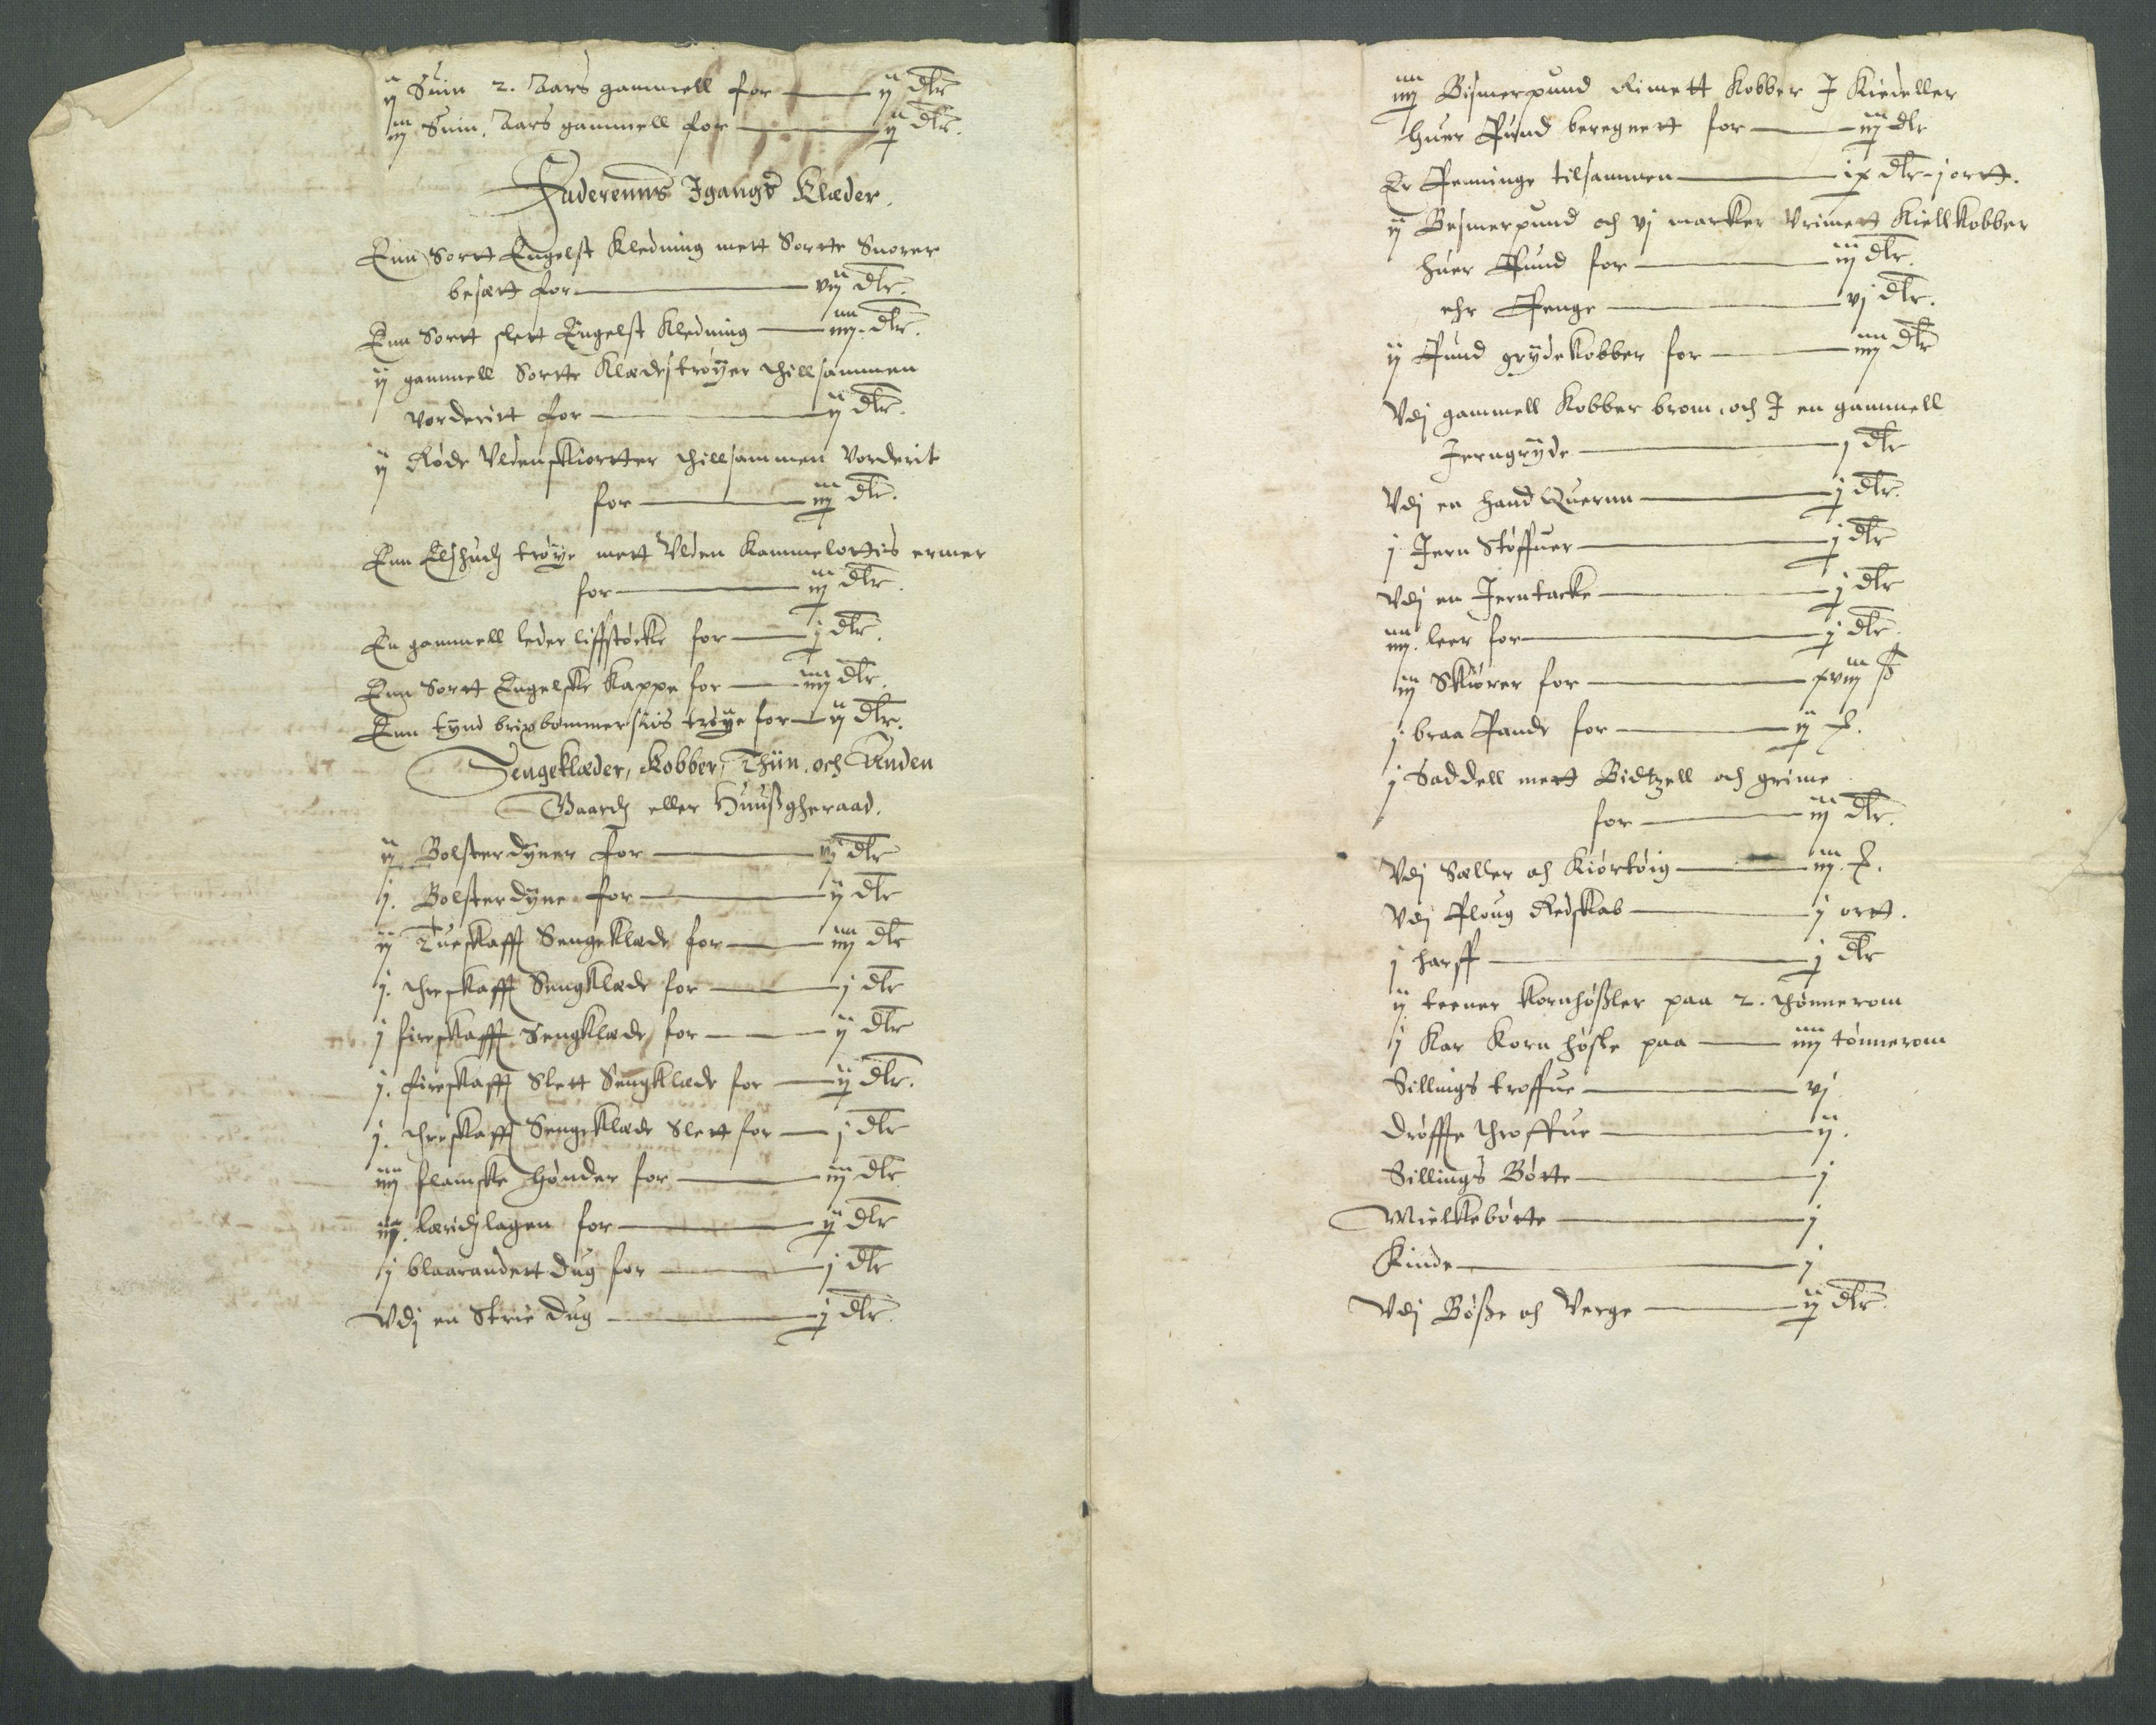 ij Suin 2. Aars gammell for — ij dlr
iij Suin, Aars gammell for — ij dlr.
Faderenns Jgangs Klæder.
Enn Sortt Engelst Kledning mett Sortte Snorer
besætt for — vij dlr.
Enn Sortt slett Engelst Kledning — iiij dlr.
ij gammell Sortte Klædstrøÿer thillsammen
vorderitt for — ij dlr.
ij Røde Vldenskiortter thillsammen Vorderit
for — iij dlr.
Enn Elshudz trøÿe mett Vlden Kammelottis ermer
for — iij dlr.
En gammell leder liffstøcke for — j dlr.
Enn Sortt Engelske Kappe for — iiij dlr.
Enn tÿnd trøÿe for — ij dlr.
Sengeklæder, Kobber, Thiin, och Anden
Gaardz eller Huußgheraad.
ij Bolsterdÿner for — vj dlr
j. Bolsterdÿne for — ij dlr
ij Tueskafft Sengeklæde for — iiij dlr
j. threskafft Sengklæde for — j dlr
j fireskafft Sengklæde for — ij dlr
j. fireskafft Slett Sengklæde for — ij dlr.
j. threskafft Sengeklæde Slett for — j dlr
iiij flamske hønder for — iij dlr
iij. læridzlagen for — ij dlr
j blaarandett dug for — j dlr
Vdj en Strie dug — j dlr.
iiij Bismerpund Rimett Kobber J Kiedeller
huer Pund beregnett for — iij dlr
Er Penninge tilsammen — ix dlr - j ortt.
ij Besmerpund och vj marker Vrimett Kiellkobber
huer Pund for — iij dlr.
ehr Penge — vj dlr.
ij Pund grydekobber for — iiij dlr
Vdj gammell Kobber brom, och J en gammell
Jerngrÿde — j dlr
Vdj en hand Quernn — j dlr.
j Jern Støffuer — j dlr
Vdj en Jerntacke — j dlr
iiij. leer for — j dlr.
iij Skiurer for — xviij ß
j braa Pande for — ij
j Saddell mett Bidtzell och grime
for — iij dlr.
Vdj Sæller och Kiørtøig — iiij
Vdj Ploug Redskab — j ortt.
j harff — j dlr
ij teener Kornhøßler paa 2. thønnerom
j Kar Korn høsle paa — iiij tønnerom
Sillings troffue — vj
drøffte throffue — ij.
Sillings Bøtte — j
Mielkebøtte — j
Kinde — j
Vdj Bøße och Verge — ij dlr.